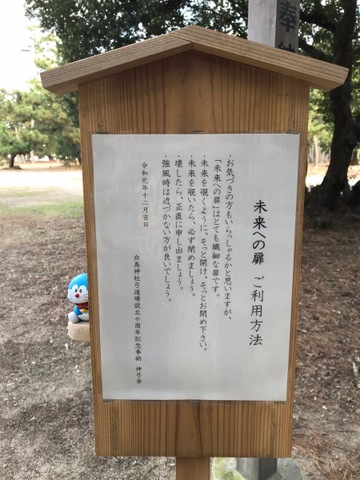 奉
未来への扉 ご利用方法
・お気づきの方もいらっしゃるかと思いますが、
「未来への扉」はとても繊細な扉です。
・未来を覗くように、そっと開け、そっとお閉め下さい。
・未来を覗いたら、必ず閉めましょう。
・壊したら、正直に申し出ましょう。
・強風時は近づかない方が良いでしょう。
令和元年十二月吉日
白鳥神社弓道場設立十周年記念奉納 神弓会